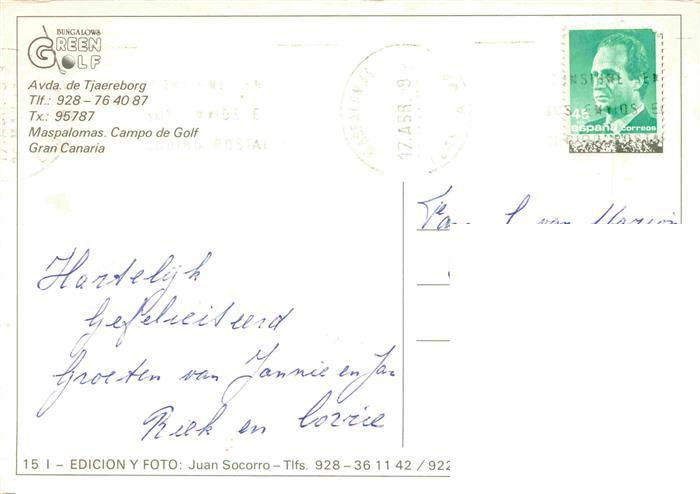 BUNGALOWS
GREEN
GOLF
Avda. de Tjaereborg
Tlf.: 928 – 76 40 87
Tx.: 95787
Maspalomas. Campo de Golf
Gran Canaria
MASPALOMAS
17 ABR. 9
45
españa correos
Fam. v van
Hartelijk
Gefeliciteerd
Groeten van Jannie en Jan
Riek en Corrie
15 I – EDICION Y FOTO: Juan Socorro – Tlfs. 928 – 36 11 42 / 922